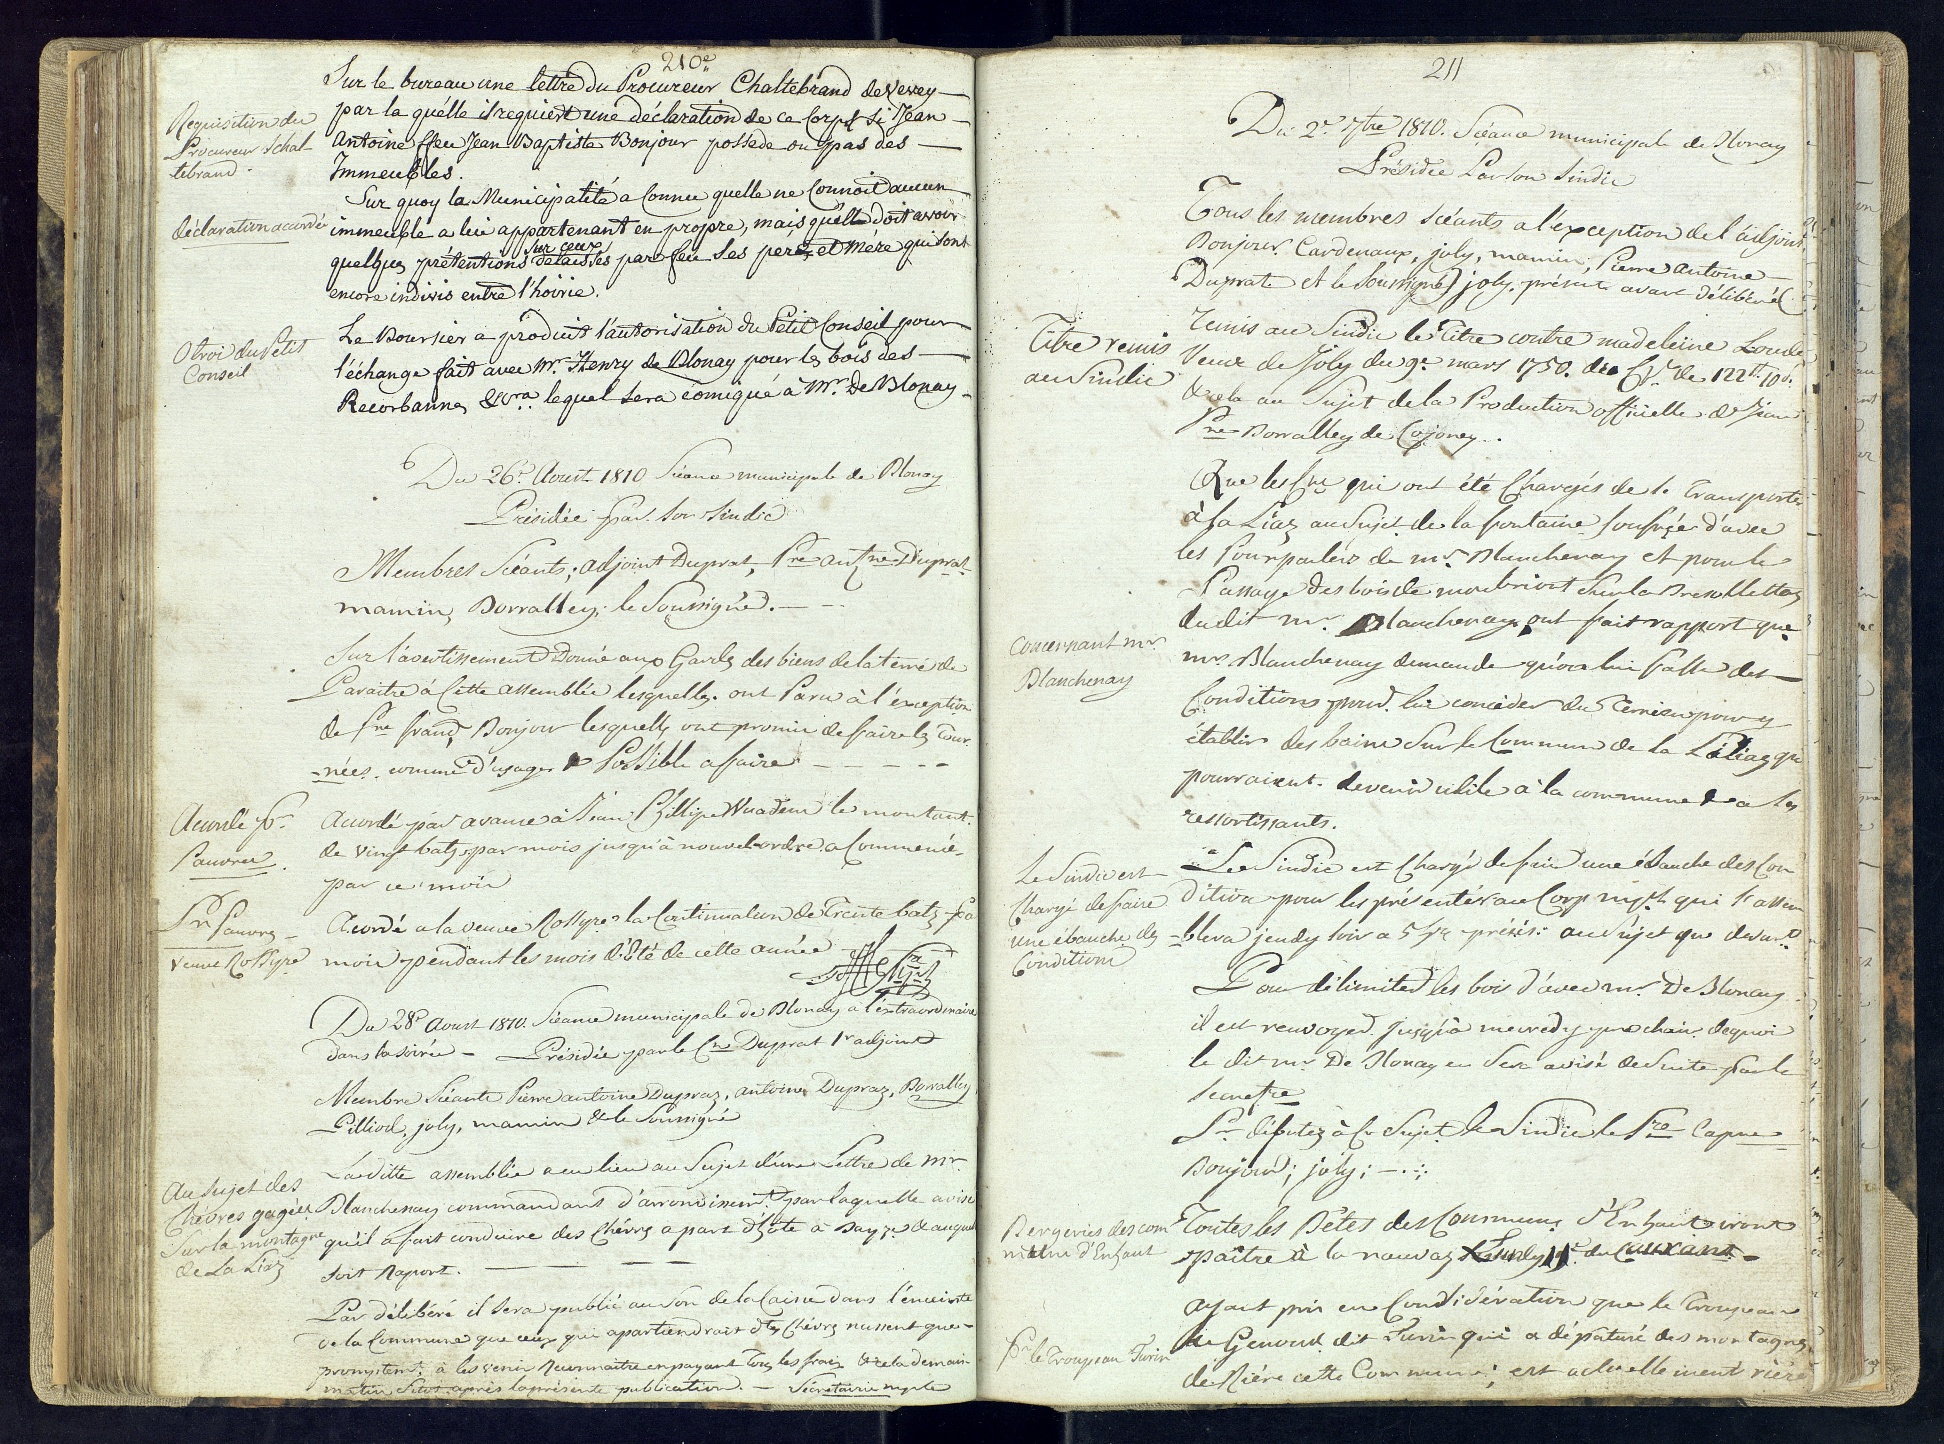 210e
Sur le bureau une lettre du Procureur Chaltebrand de Vevey
par la quélle il requiert une déclaration de ce Corps si Jean
Antoine ffeu Jean Baptiste Bonjour possède ou pas des
Immeubles.
Requisition du
Procureur Schal
tebrand.
Sur quoy la Municipalité a Connu quelle ne Connoit aucun
immeuble a lui appartenant en propre, mais qu'elle doit avoir
quelques prétentions sur ceux delaissés par feu ses perè et Mére qui sont
encore indivis entre l'hoirie.
déclaration acordée
Le Boursier a produit l'autorisation du Petit Conseil pour
l'échange fait avec Mr. Henry de Blonay pour les bois des
Recorbannes &cra. lequel sera comiqué à Mr. De Blonay
Otroi du Petit
Conseil
Du 26e. Aoust 1810 Séance municipale de Blonay
Présidée par son Sindic
Membres Séants; adjoint Duprat, Pre antne Duprat
mamin, Borralley; le Soussigné.
Sur l'avertissement Donné aux Gardes des biens de la terre de
Paraitre à Cette assemblée lesquelles ont Paru à l'éxception
de fre franç Bonjour lesquells ont promis de faire les tour
-nées. comme d'usage & Possible a faire
Acordé pr.
Pauvres
Acordé par avance à Jean Phillipe Wuadens le montant
de vingt batz par mois jusqu'à nouvel ordre a Commencé
par ce mois
Pr. Pauvres
veuve Rossyre
Acordé a la veuve Rossyre la Continuation de Trente batz pa
mois pendant les mois d'Eté de cette année
Du 28e aoust 1810. Séance municipale de Blonay a l'extraordinaire
dans la soirée - Présidée par le Cen Duprat 1r adjoint
Membre Séants Pierre antoine Dupraz, antoine Dupraz, Borralley
Pilliod, joly, mamin & le Soussigné
Au sujet des
Chévres gagées
Sur la montagne
de La Liaz
La ditte assemblée a eu lieu au Sujet d'une Lettre de Mr.
Blanchenay commandant d'arrondissemt par laquelle avise
qu'il a fait conduire des Chévres a part
soit Raport.
Par délibéré il sera publié au son de la Caisse dans l'énceinte
de la Commune que ceux qui apartiendroit dtes Chévres n'ussent que
promptemt. à les venir Reconnaitre en payant Tous les frais & cela demain
matin Sitot après la présente publication. - Sécrétairie mple
211
Du 2e. 7bre 1810. Séance municipale de Blonay
Présidée Par son Sindic
Tous les membres séants a l'éxception de l'adjoint
Bonjour. Cardenaux, joly, mamin, Pierre antoine
Duprat et le Soussigné) joly. présent avant délibéré(
Titre remis
au Sindic
Remis au Sindic le Titre contre madeleine
Veuve de Joly du 9e. mars 1750. de de 122
& cela au Sujet de la Production officielle de Jean
Pre Borralley de Cojonex.
Que les Cns qui ont été Chargés de se Transporter
à la Liaz au Sujet de la fontaine soufrée d'avec
les Pourparlers de mr. Blanchenay et pour le
Passage des bois de montbriont Sur la Bresellettaz
dudit mr. Blanchenay, ont fait rapport que
mr. Blanchenay demande qu'on lui fasse des
Conditions pour lui conceder du Terrein pour y
établir des bains Sur le Commun de la Liaz qui
pourraient devenir utile à la commune & a les
ressortissants.
Concernant mr.
Blanchenay
Le Sindic est
Chargé de faire
une ébauche des
Conditions
Le Sindic est Chargé de faire une ébauche des Con
ditions pour les présenter au Corp mpal qui s'assem
-blera jeudy soir a 5 hres précis: au sujet que devant
Pour délimiter les bois d'avec mr. De Blonay
il est renvoyer jusqu'à mecredy prochain dequoi
le dit mr De Blonay en Sera avisé de Suite par le
Secretre
Pr. députez à Ce Sujet. le Sindic le
Bonjour; joly;
Bergeries des com
mune d'Enhaut
Toutes les Bêtes des Communs d'Enhaut iront
paître à la nauvaz Lundy 11e. du Courant.
pr le Troupeau Turin
ayant pris en Considération que le Troupeau
de Genoud dit Turin qui a dépaturé des montagnes
de Riére cette Commune; est actuellement riére